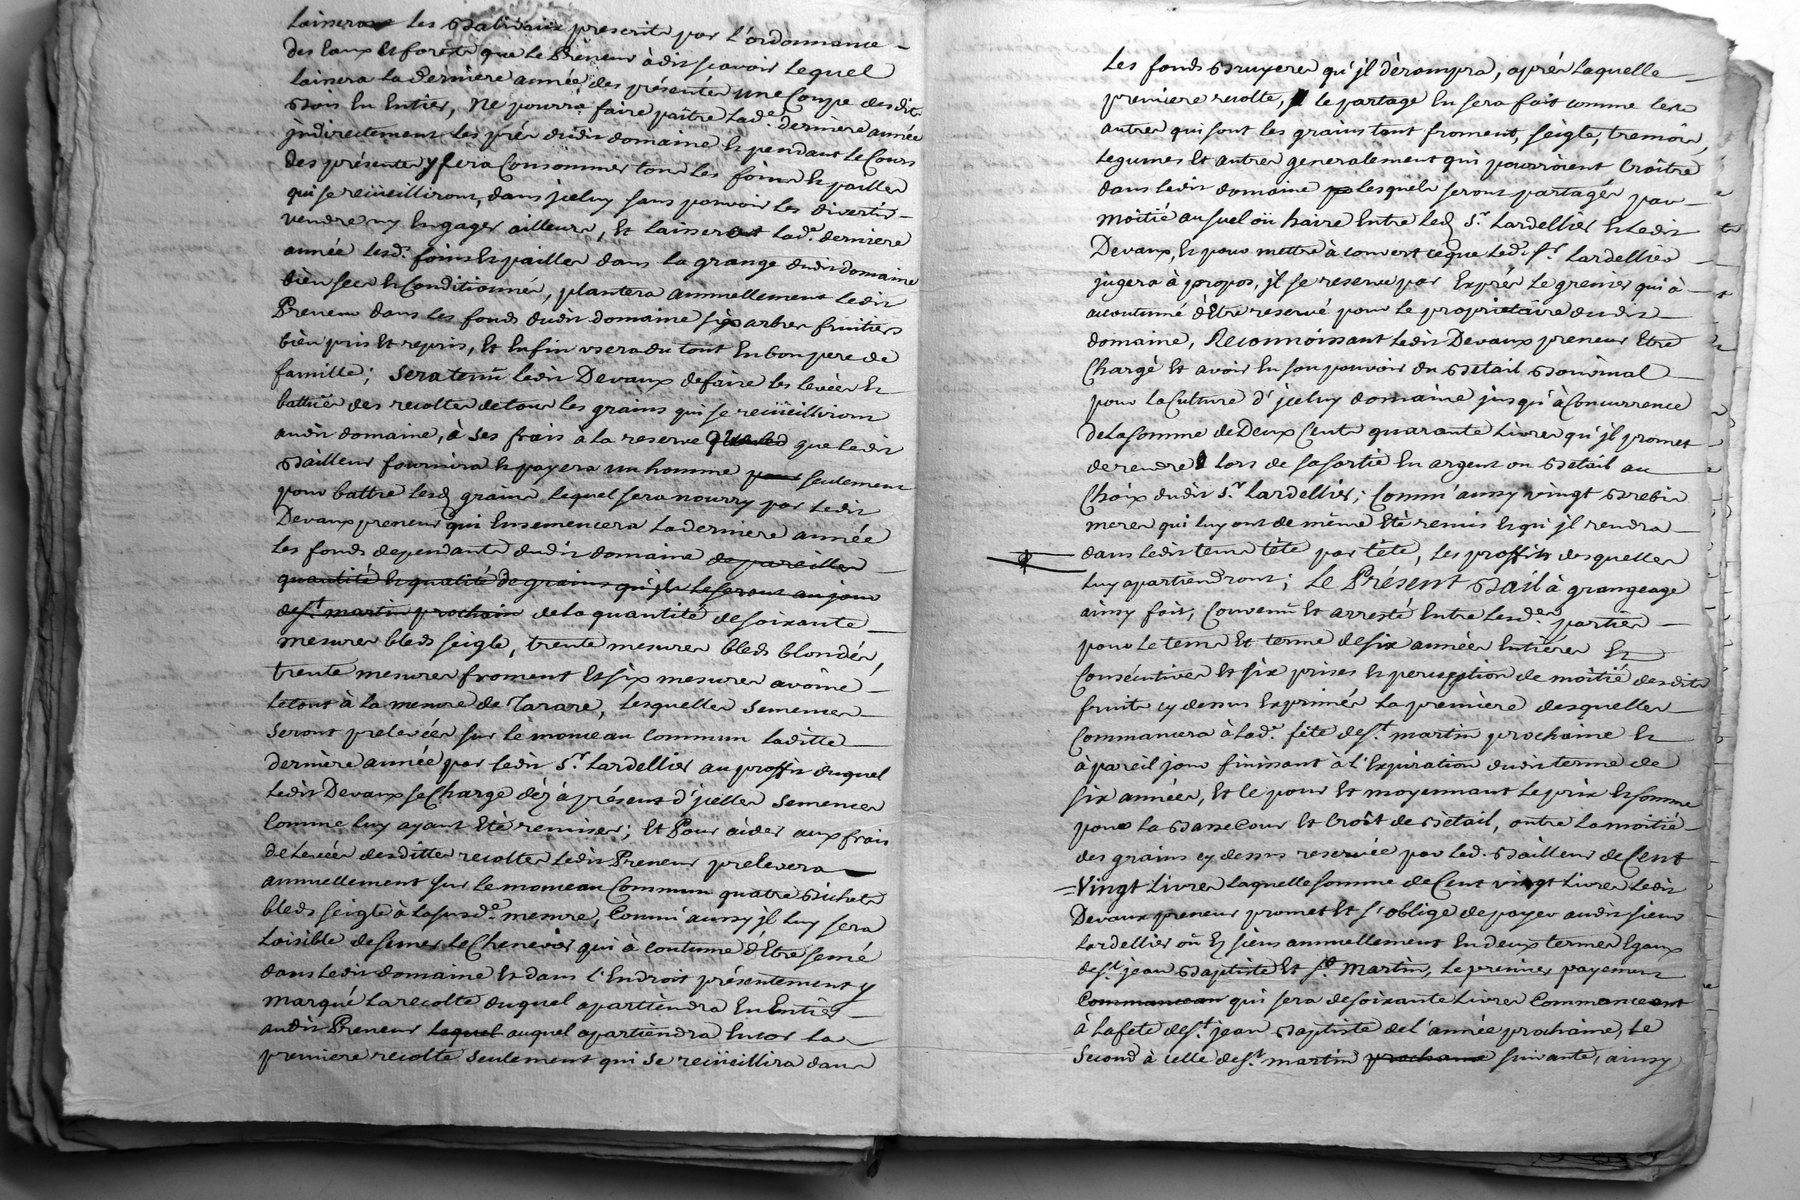 laisser les Baliveaux prescrits par l'ordonnance
des Eaux et forests que le Preneur à dit scavoir lequel
laissera la derniere année des présentes une Coupe desdits
Bois En Entier, ne pourra faire paître lad.e derniere année
jndirectement les prés dudit domaine Et pendant le Cours
des présentes y fera Consommer tous les foins Et pailles
qui se reüeilliront, dans jceluy sans pouvoir les divertir
vendre ny Engager ailleurs, Et laissera lad.e derniere
année lesd. foins Et pailles dans la grange dudit domaine
bien secs Et Conditionnés, plantera annuellement ledit
Preneur dans les fonds dudit domaine six arbres fruitiers
bien pris Et repris, Et Enfin usera du tout En bon pere de
famille; sera tenu ledit Devaux de faire les levées Et
battues des recoltes de tous les grains qui se reüeilliront
audit domaine, à ses frais à la reserve que ledit
Bailleur fournira Et payera un homme pour seulement
pour battre lesd. grains lequel sera nourry par ledit
Devaux preneur qui Ensemencera la derniere année
les fonds dependants dudit domaine de pareilles
quantité Et qualité de grains qu'jls le seront au jour
de St martin prochain de la quantité de soixante
mesures bleds seigle, trente mesures bleds blondés,
trente mesures froment Et six mesures avoine
le tout à la mesure de Tarare, lesquelles semences
seront prelevées sur le monceau commun laditte
derniere année par ledit Sr. Lardellier au proffit duquel
ledit Devaux se Charge dez à présent d'jcelles semences
Comme luy ayant Eté remises; Et Pour aider aux frais
de levées desdittes recoltes ledit Preneur prelevera
annuellement sur le monceau Commun quatre Bichets
bleds seigle à la susd.e mesure, Comm'aussy jl luy sera
loisible de semer le Chenevier qui à coutume d'Etre semé
dans ledit domaine Et dans l'Endroit présentement y
marqué la recolte duquel apartiendra En Entier
audit Preneur lequel auquel apartiendra Encor la
premiere recolte seulement qui se reüeillira dans
les fonds Bruyeres qu'jl dérompra, après laquelle
premiere recolte, le partage En sera fait comme les
autres qui sont les grains tant froment, seigle, tremois,
legumes Et autres generalement qui pourroient Croître
dans ledit domaine lesquels seront partagés par
moitié au suel où haire Entre led. Sr. Lardellier Et ledit
Devaux, Et pour mettre à couvert ce que led. Sr. Lardellier
jugera à propos, jl se reserve par Exprés le grenier qui à
accoutumé d'Etre reservé pour le proprietaire dudit
domaine, Reconnoissant ledit Devaux preneur Etre
Chargé Et avoir En son pouvoir du Betail Bourinal
pour la Culture d'jceluy domaine jusqu'à Concurrence
de la somme de Deux Cents quarante Livres qu'jl promet
de rendre lors de sa sortie En argent ou Betail au
Choix dudit Sr. Lardellier; Comm'aussy vingt Brebis
meres qui luy ont de même Eté remis Et qu'jl rendra
dans ledit tems tête par tête, les proffits desquelles
luy apartiendront; Le Présent Bail à grangeage
ainsy fait, Convenu Et arresté Entre lesd.es parties
pour le tems Et terme de six années Entieres Et
Consécutives Et six prises Et perception de moitié desdits
fruits cy dessus Exprimés la première desquelles
Commancera à lad.e fête de St. martin prochaine Et
à pareil jour finissant à l'Expiration dudit terme de
six années, Et ce pour Et moyennant le prix Et somme
pour la Basse Cour Et Croît de Betail, outre la moitié
des grains cy dessus reservée par led. Bailleur de Cent
Vingt Livres laquelle somme de Cent vingt Livres ledit
Devaux preneur promet Et s'oblige de payer audit sieur
Lardellier où Es siens annuellement En deux termes Egaux
de St. jean Baptiste Et St. Martin, le premier payement
Commancant qui sera de soixante Livres Commancent
à la fete de St. jean Baptiste de l'année prochaine, le
second à celle de St. martin prochaine suivante, ainsy